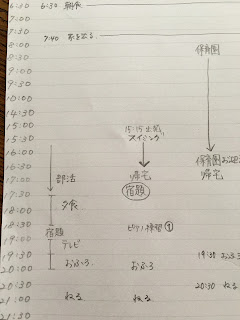 6:30 6:30 朝食
7:00
7:30 7:40 家を出る
8:00 保育園
8:30
9:00
9:30
10:00
14:30
15:00 15:15 出発
15:30 スイミング
16:00
16:30 保育園お迎え
17:00 部活 帰宅 帰宅
17:30 宿題
18:00 夕食
18:30
19:00 宿題 ピアノ練習①
テレビ
19:30 おふろ おふろ 19:30 おふろ
20:00
20:30 20:30 寝る
21:00 ねる ねる
21:30